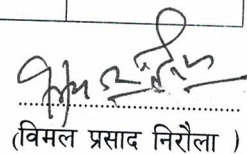 (विमल प्रसाद निरौला )